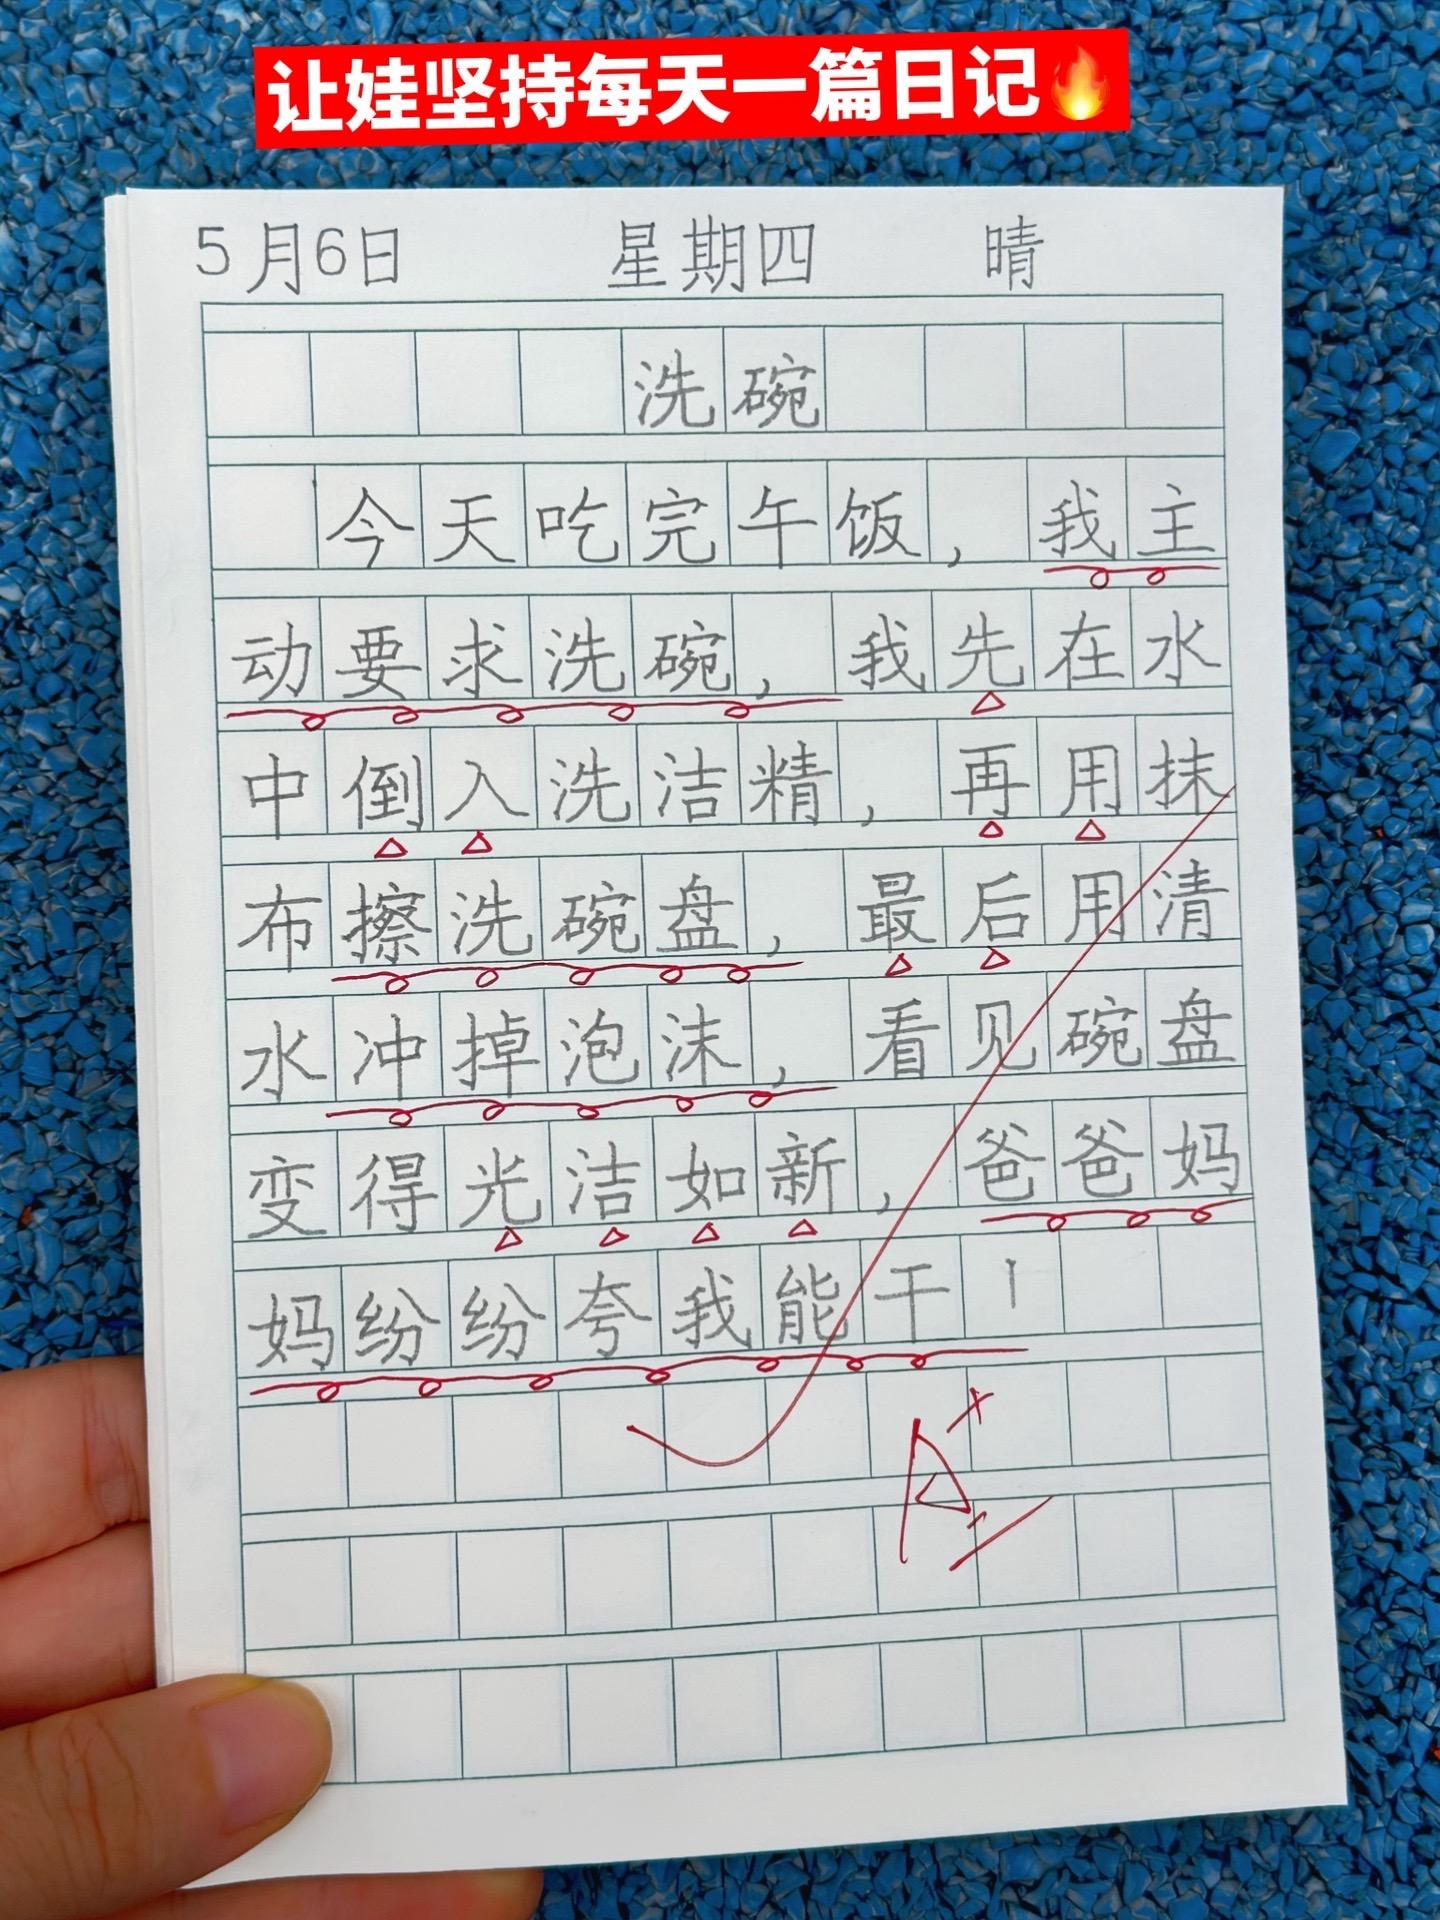 让娃坚持每天一篇日记🔥
5月6日 星期四 晴
洗碗
今天吃完午饭，我主
动要求洗碗，我先在水
中倒入洗洁精，再用抹
布擦洗碗盘，最后用清
水冲掉泡沫，看见碗盘
变得光洁如新，爸爸妈
妈纷纷夸我能干！
A+